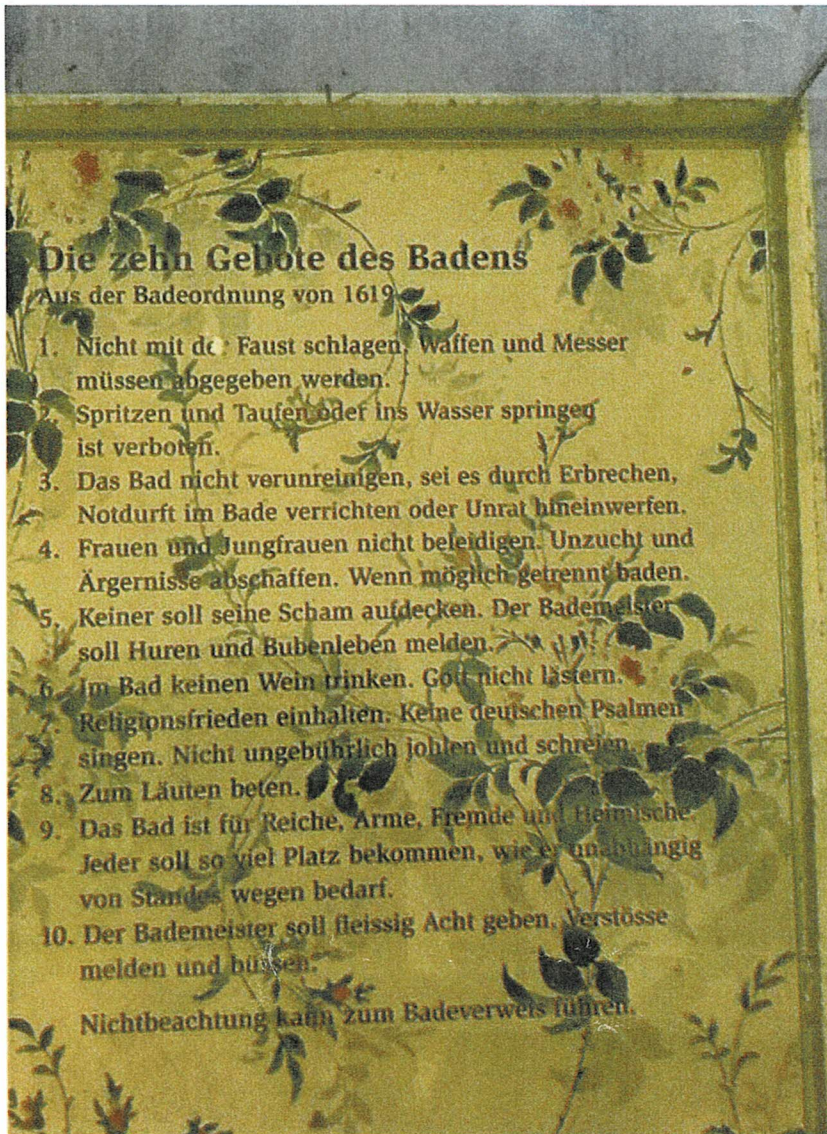 Die zehn Gebote des Badens
Aus der Badeordnung von 1619
1. Nicht mit der Faust schlagen. Waffen und Messer
müssen abgegeben werden.
2. Spritzen und Taufen oder ins Wasser springen
ist verboten.
3. Das Bad nicht verunreinigen, sei es durch Erbrechen,
Notdurft im Bade verrichten oder Unrat hineinwerfen.
4. Frauen und Jungfrauen nicht beleidigen. Unzucht und
Ärgernisse abschaffen. Wenn möglich getrennt baden.
5. Keiner soll seine Scham aufdecken. Der Bademeister
soll Huren und Bubenleben melden.
6. Im Bad keinen Wein trinken. Gott nicht lästern.
7. Religionsfrieden einhalten. Keine deutschen Psalmen
singen. Nicht ungebührlich johlen und schreien.
8. Zum Läuten beten.
9. Das Bad ist für Reiche, Arme, Fremde und Heimische.
Jeder soll so viel Platz bekommen, wie er unabhängig
von Standes wegen bedarf.
10. Der Bademeister soll fleissig Acht geben, Verstösse
melden und büssen.
Nichtbeachtung kann zum Badeverweis führen.